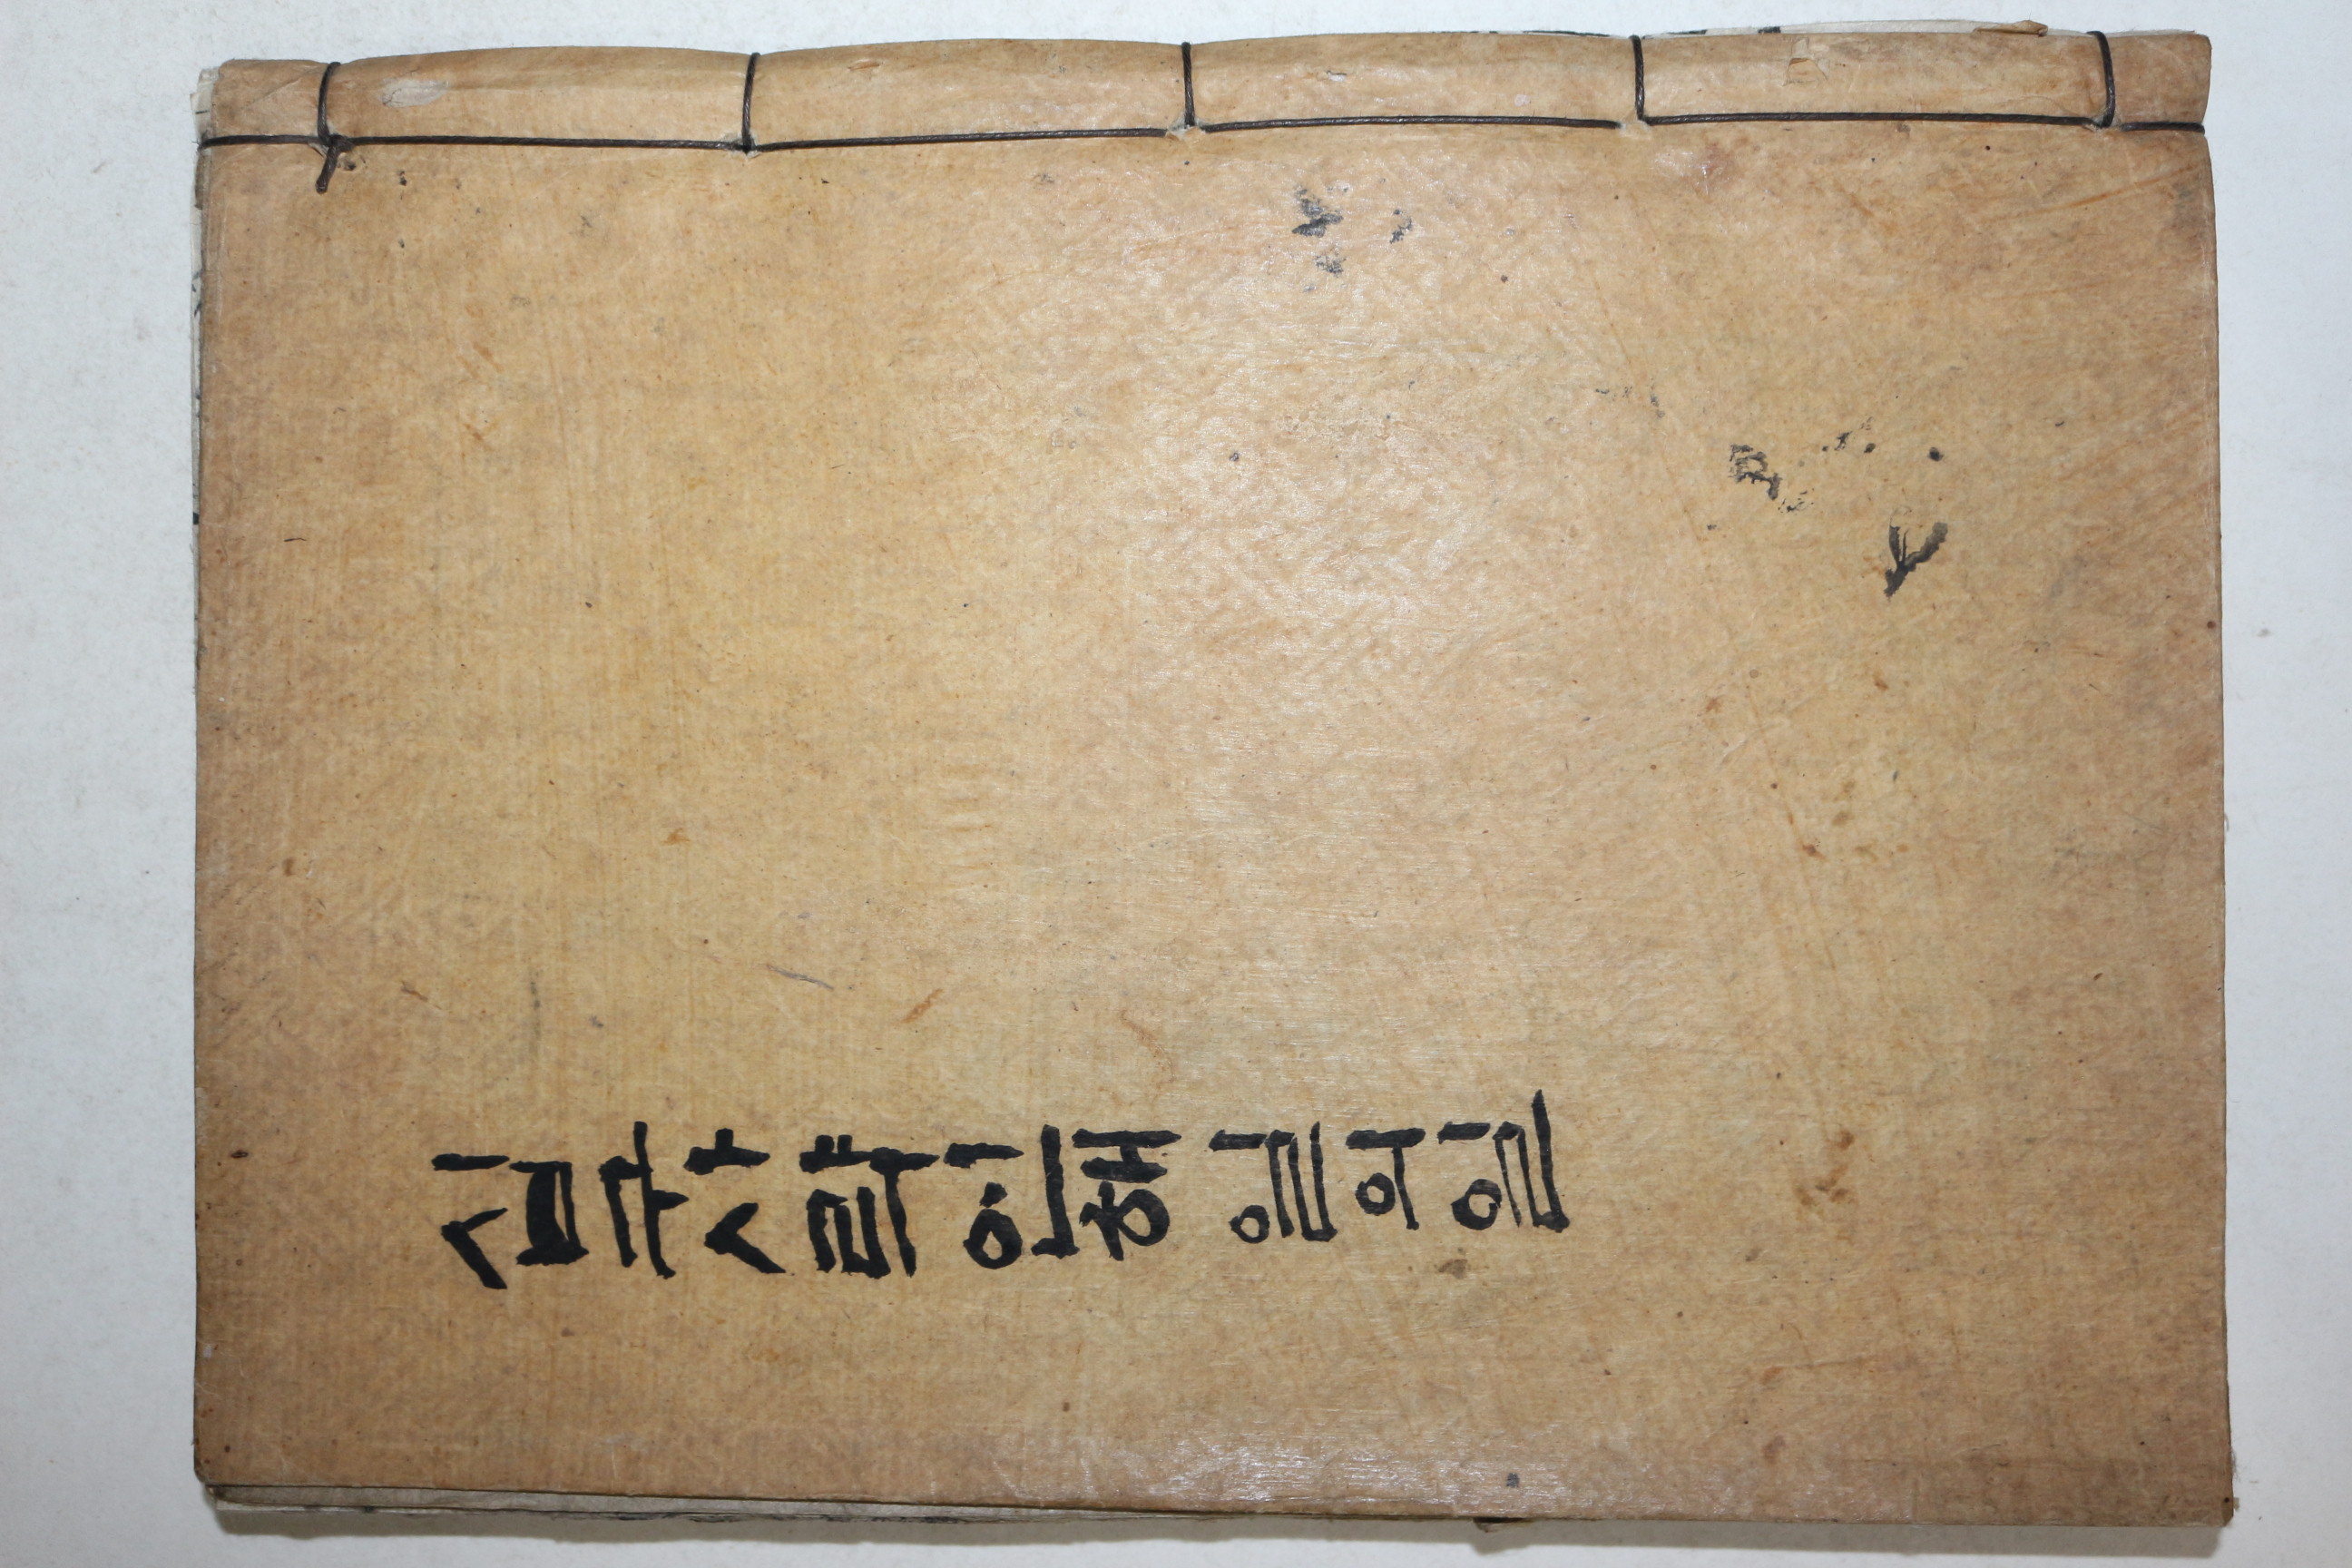 십구사략언해 일의일